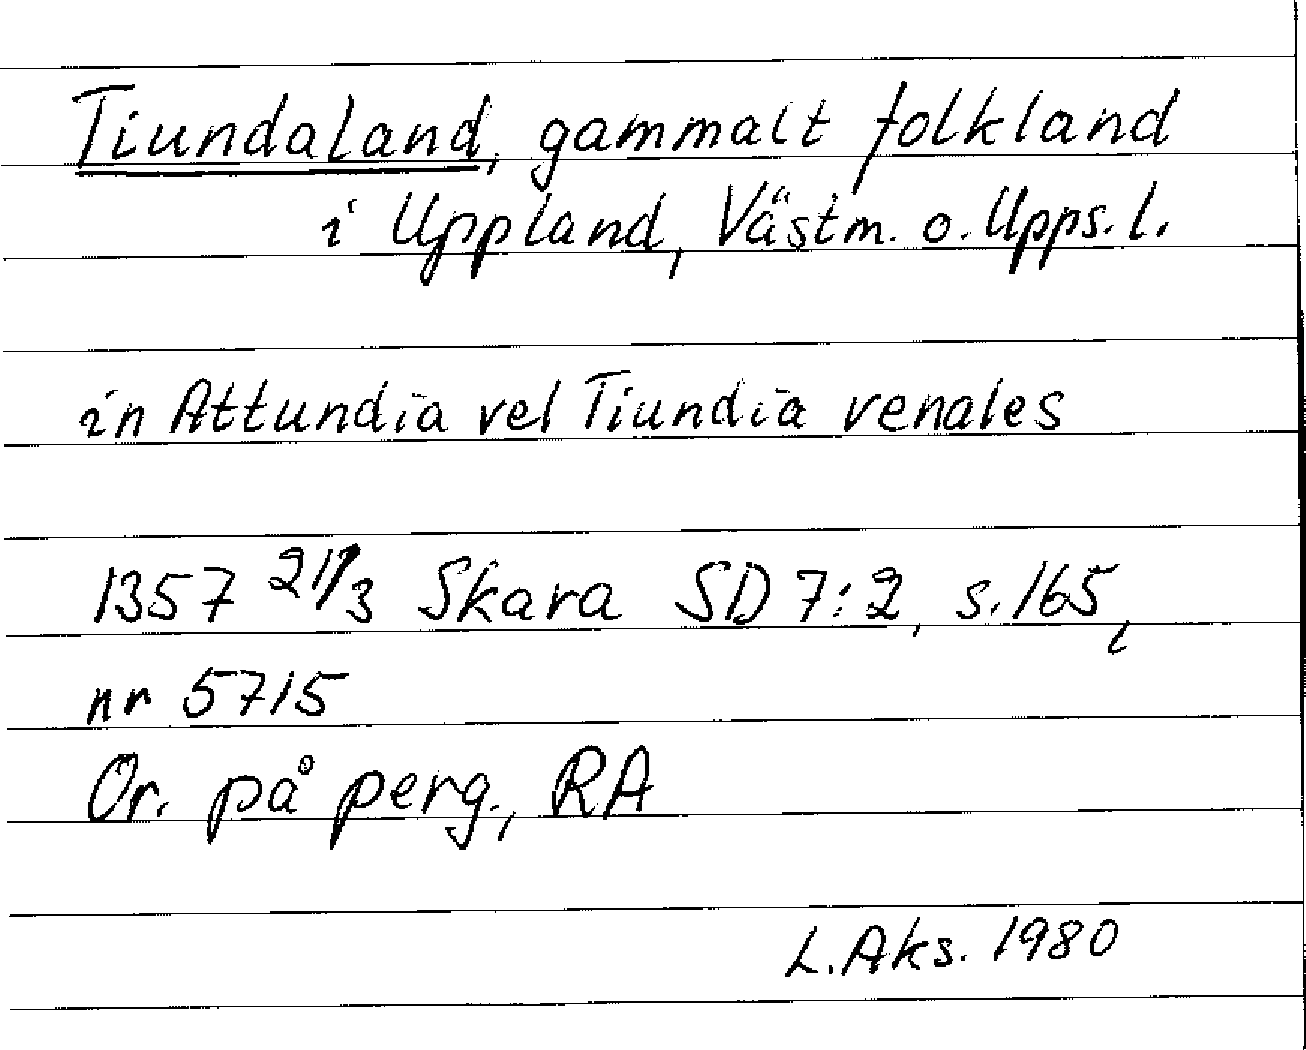 Tiundaland, gammalt folkland
i Uppland, Västm. o. Upps. l.
in Attundia vel Tiundia venales
1357 21/3 Skara SD 7:2, s. 165,
nr 5715
Or. på perg., RA
L. Aks. 1980